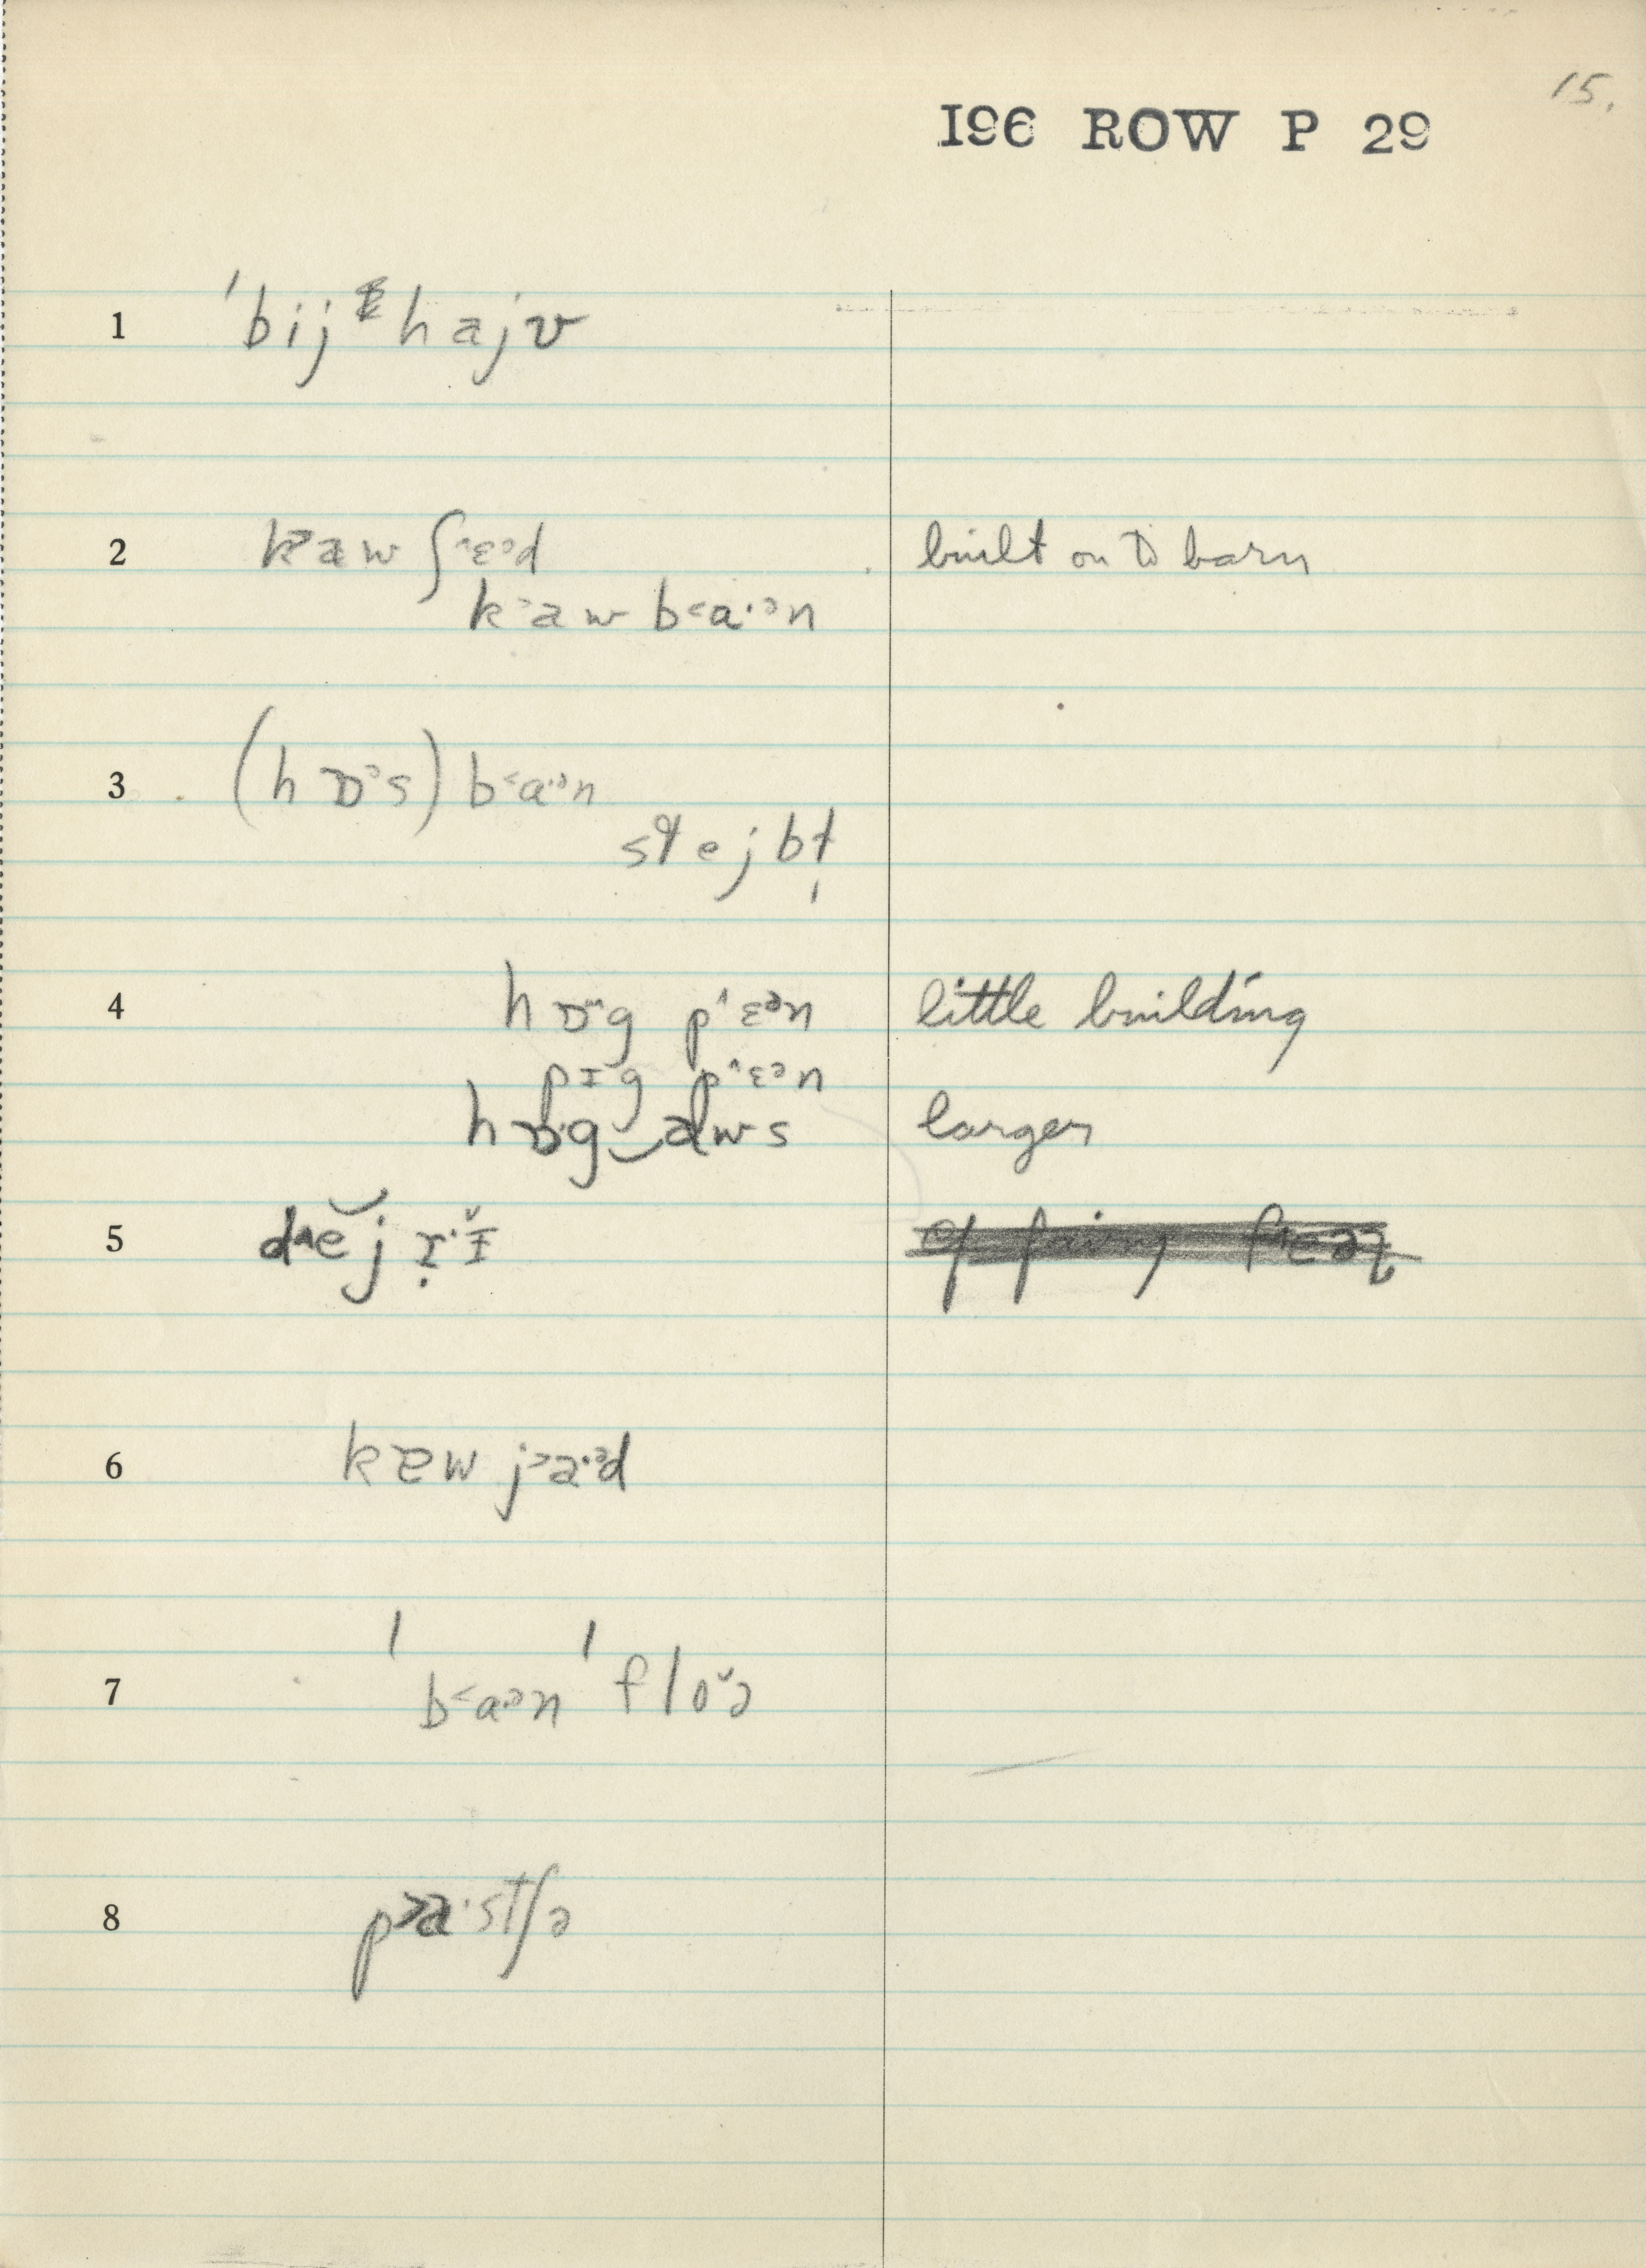 15.
196 ROW P 29
1 ˈbij hajv
2 k˃aw ʃ˄ɛ˒ɔd built on to barn
k˃aw b˂a·ən
3 (hɒ˃s) b˂a·ən
stejbɫ̩
4 hɒg p˄ɛən little building
pɪg p˄ɛən
hɒg‿aws larger
5 d˄ĕjɾɪ̆
6 kɐw j˃a·əd
7 ˈb˂a·ən ˈflo˅ə
8 p˃a·stʃə